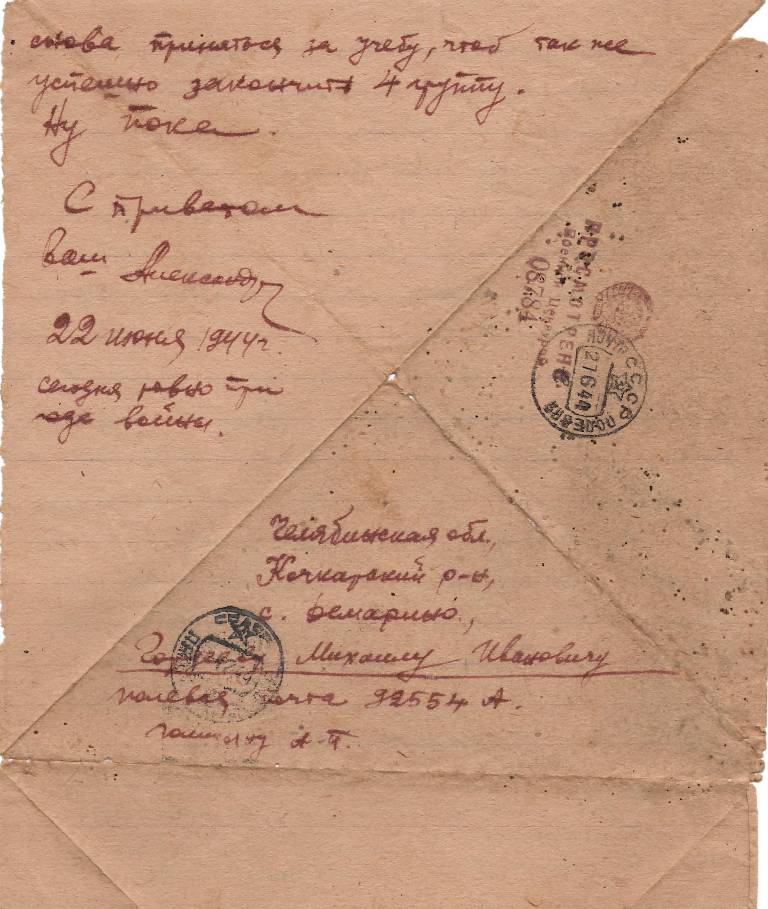 снова приняться за учебу, чтоб так же
успешно закончить 4 группу.
Ну пока.
С приветом
ваш Александр
22 июня 1944 г.
сегодня ровно три
года войны.
ПРОСМОТРЕНО
Военной Цензурой
03784
СССР
ПОЛЕВАЯ
Челябинская обл.,
Кочкарский р-н,
с.
Михаилу Ивановичу
полевая почта 92554 А.
А.П.